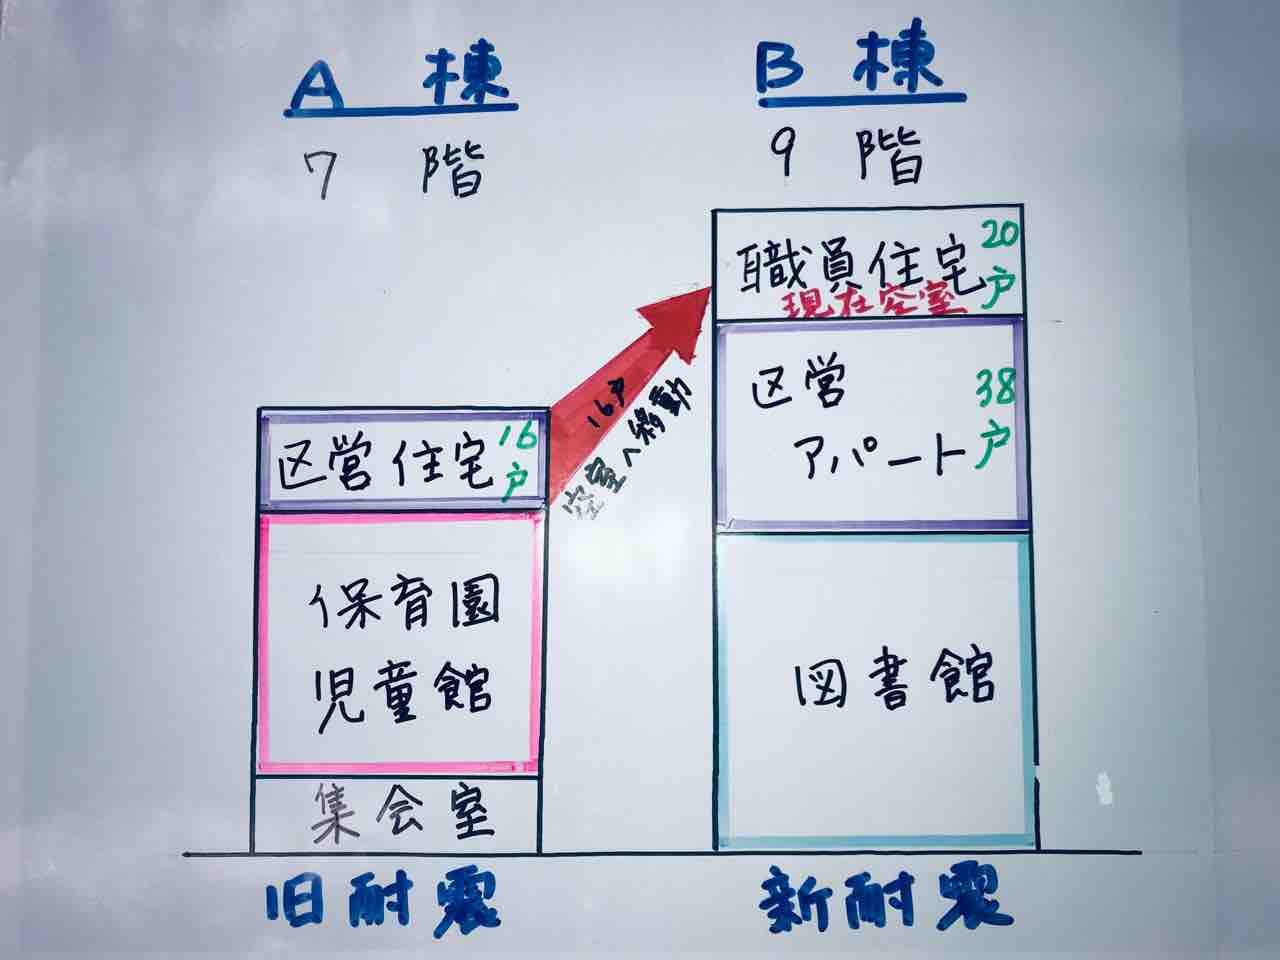 A 棟
7 階
区営住宅 16戸
保育園
児童館
集会室
旧耐震
16戸
空室へ移動
B 棟
9 階
職員住宅 20戸
現在空室
区営
アパート 38戸
図書館
新耐震